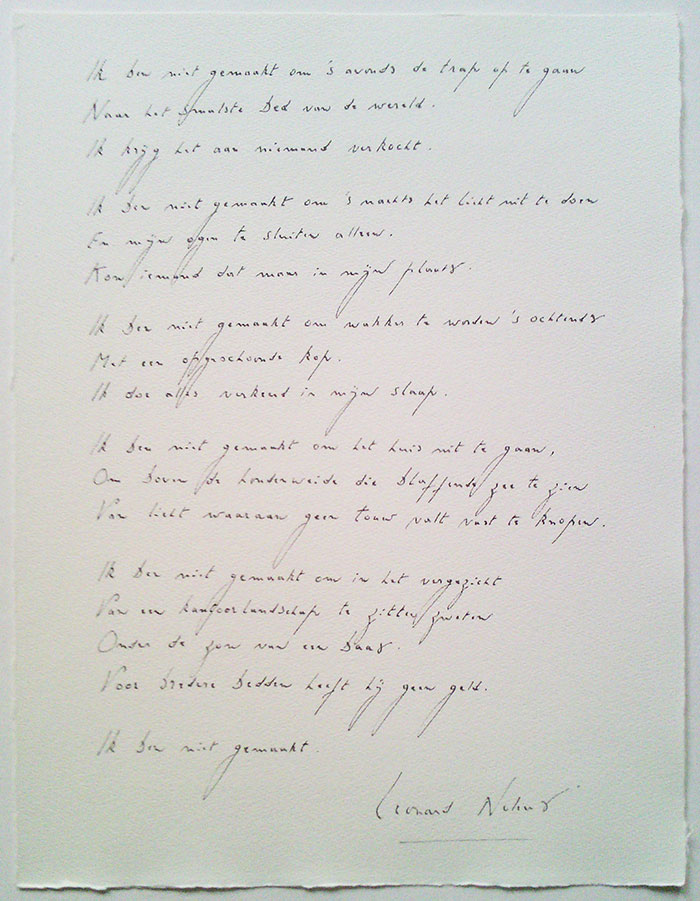 Ik ben niet gemaakt om 's avonds de trap op te gaan
Naar het smalste bed van de wereld.
Ik krijg het aan niemand verkocht.
Ik ben niet gemaakt om 's nachts het licht uit te doen
En mijn ogen te sluiten alleen.
Kon iemand dat maar in mijn plaats.
Ik ben niet gemaakt om wakker te worden 's ochtends
Met een opgeschoonde kop.
Ik doe alles verkeerd in mijn slaap.
Ik ben niet gemaakt om het huis uit te gaan,
Om boven de hondenweide die blaffende zee te zien
Van licht waaraan geen touw valt vast te knopen.
Ik ben niet gemaakt om in het vergezicht
Van een kantoorlandschap te zitten zweten
Onder de zon van een baas.
Voor bredere bedden heeft hij geen geld.
Ik ben niet gemaakt.
Leonard Nolens